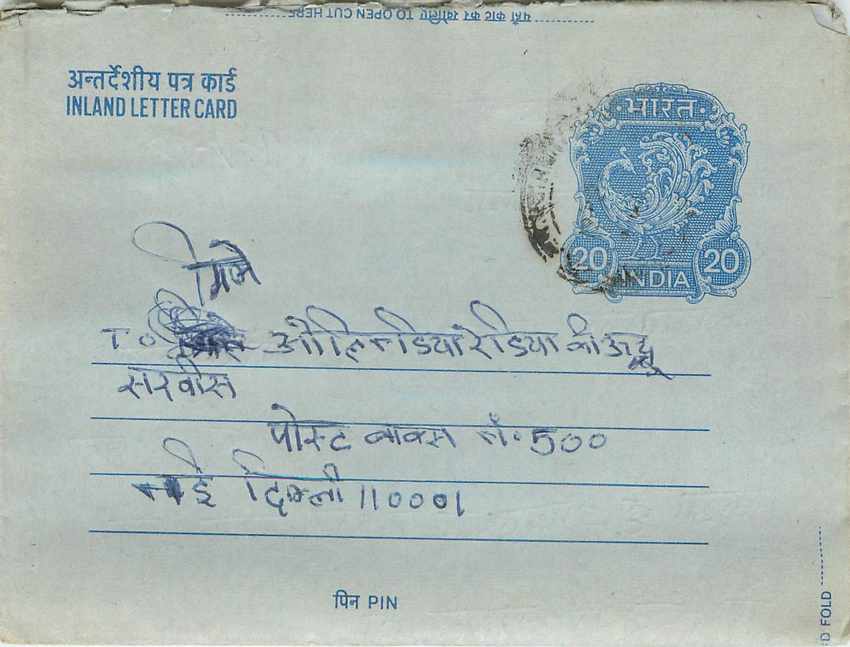 यहाँ काट कर खोलिए TO OPEN CUT HERE
अन्तर्देशीय पत्र कार्ड
INLAND LETTER CARD
भारत
20 INDIA 20
मिले
TO ओलिन्डिया रेडिया की ऊर्दू
सरवीस
पोस्ट बाक्स नं. 500
नई दिल्ली 110001
पिन PIN
D FOLD